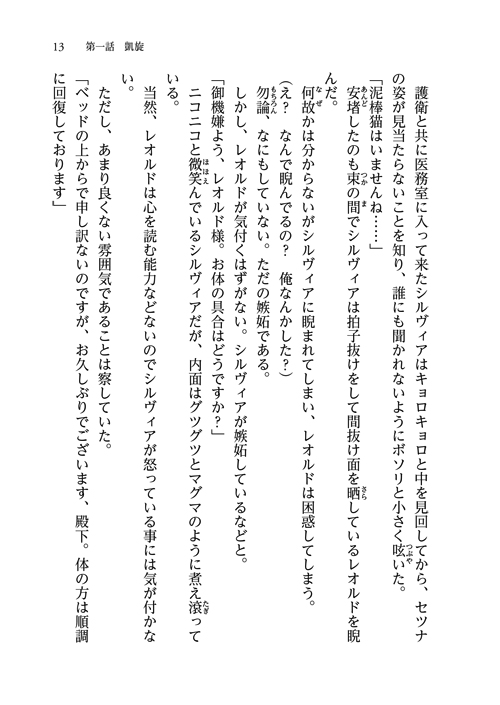 13　第一話　凱旋
　護衛と共に医務室に入って来たシルヴィアはキョロキョロと中を見回してから、セツナ
の姿が見当たらないことを知り、誰にも聞かれないようにボソリと小さく呟いた。
「泥棒猫はいませんね……」
　安堵したのも束の間でシルヴィアは拍子抜けをして間抜け面を晒しているレオルドを睨
んだ。
　何故かは分からないがシルヴィアに睨まれてしまい、レオルドは困惑してしまう。
（え？　なんで睨んでるの？　俺なんかした？）
　勿論、なにもしていない。ただの嫉妬である。
　しかし、レオルドが気付くはずがない。シルヴィアが嫉妬しているなどと。
「御機嫌よう、レオルド様。お体の具合はどうですか？」
　ニコニコと微笑んでいるシルヴィアだが、内面はグツグツとマグマのように煮え滾って
いる。
　当然、レオルドは心を読む能力などないのでシルヴィアが怒っている事には気が付かな
い。
　ただし、あまり良くない雰囲気であることは察していた。
「ベッドの上からで申し訳ないのですが、お久しぶりでございます、殿下。体の方は順調
に回復しております」